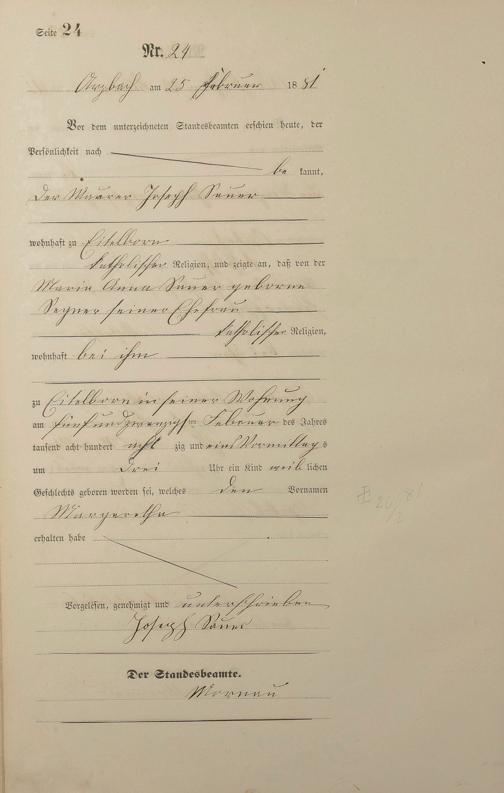 Seite 24
Nr. 24
Arzbach am 25 Februar 1881
Vor dem unterzeichneten Standesbeamten erschien heute, der
Persönlichkeit nach
be kannt,
der Maurer Joseph Sauer
wohnhaft zu Eitelborn
katholischer Religion, und zeigte an, daß von der
Maria Anna Sauer geborne
Segner seiner Ehefrau
katholischer Religion,
wohnhaft bei ihm
zu Eitelborn in seiner Wohnung
am fünfundzwanzigsten Februar des Jahres
tausend acht hundert acht zig und eins Vormittags
um drei Uhr ein Kind weib lichen
Geschlechts geboren worden sei, welches den Vornamen
Margaretha
erhalten habe
Vorgelesen, genehmigt und unterschrieben
Joseph Sauer
Der Standesbeamte.